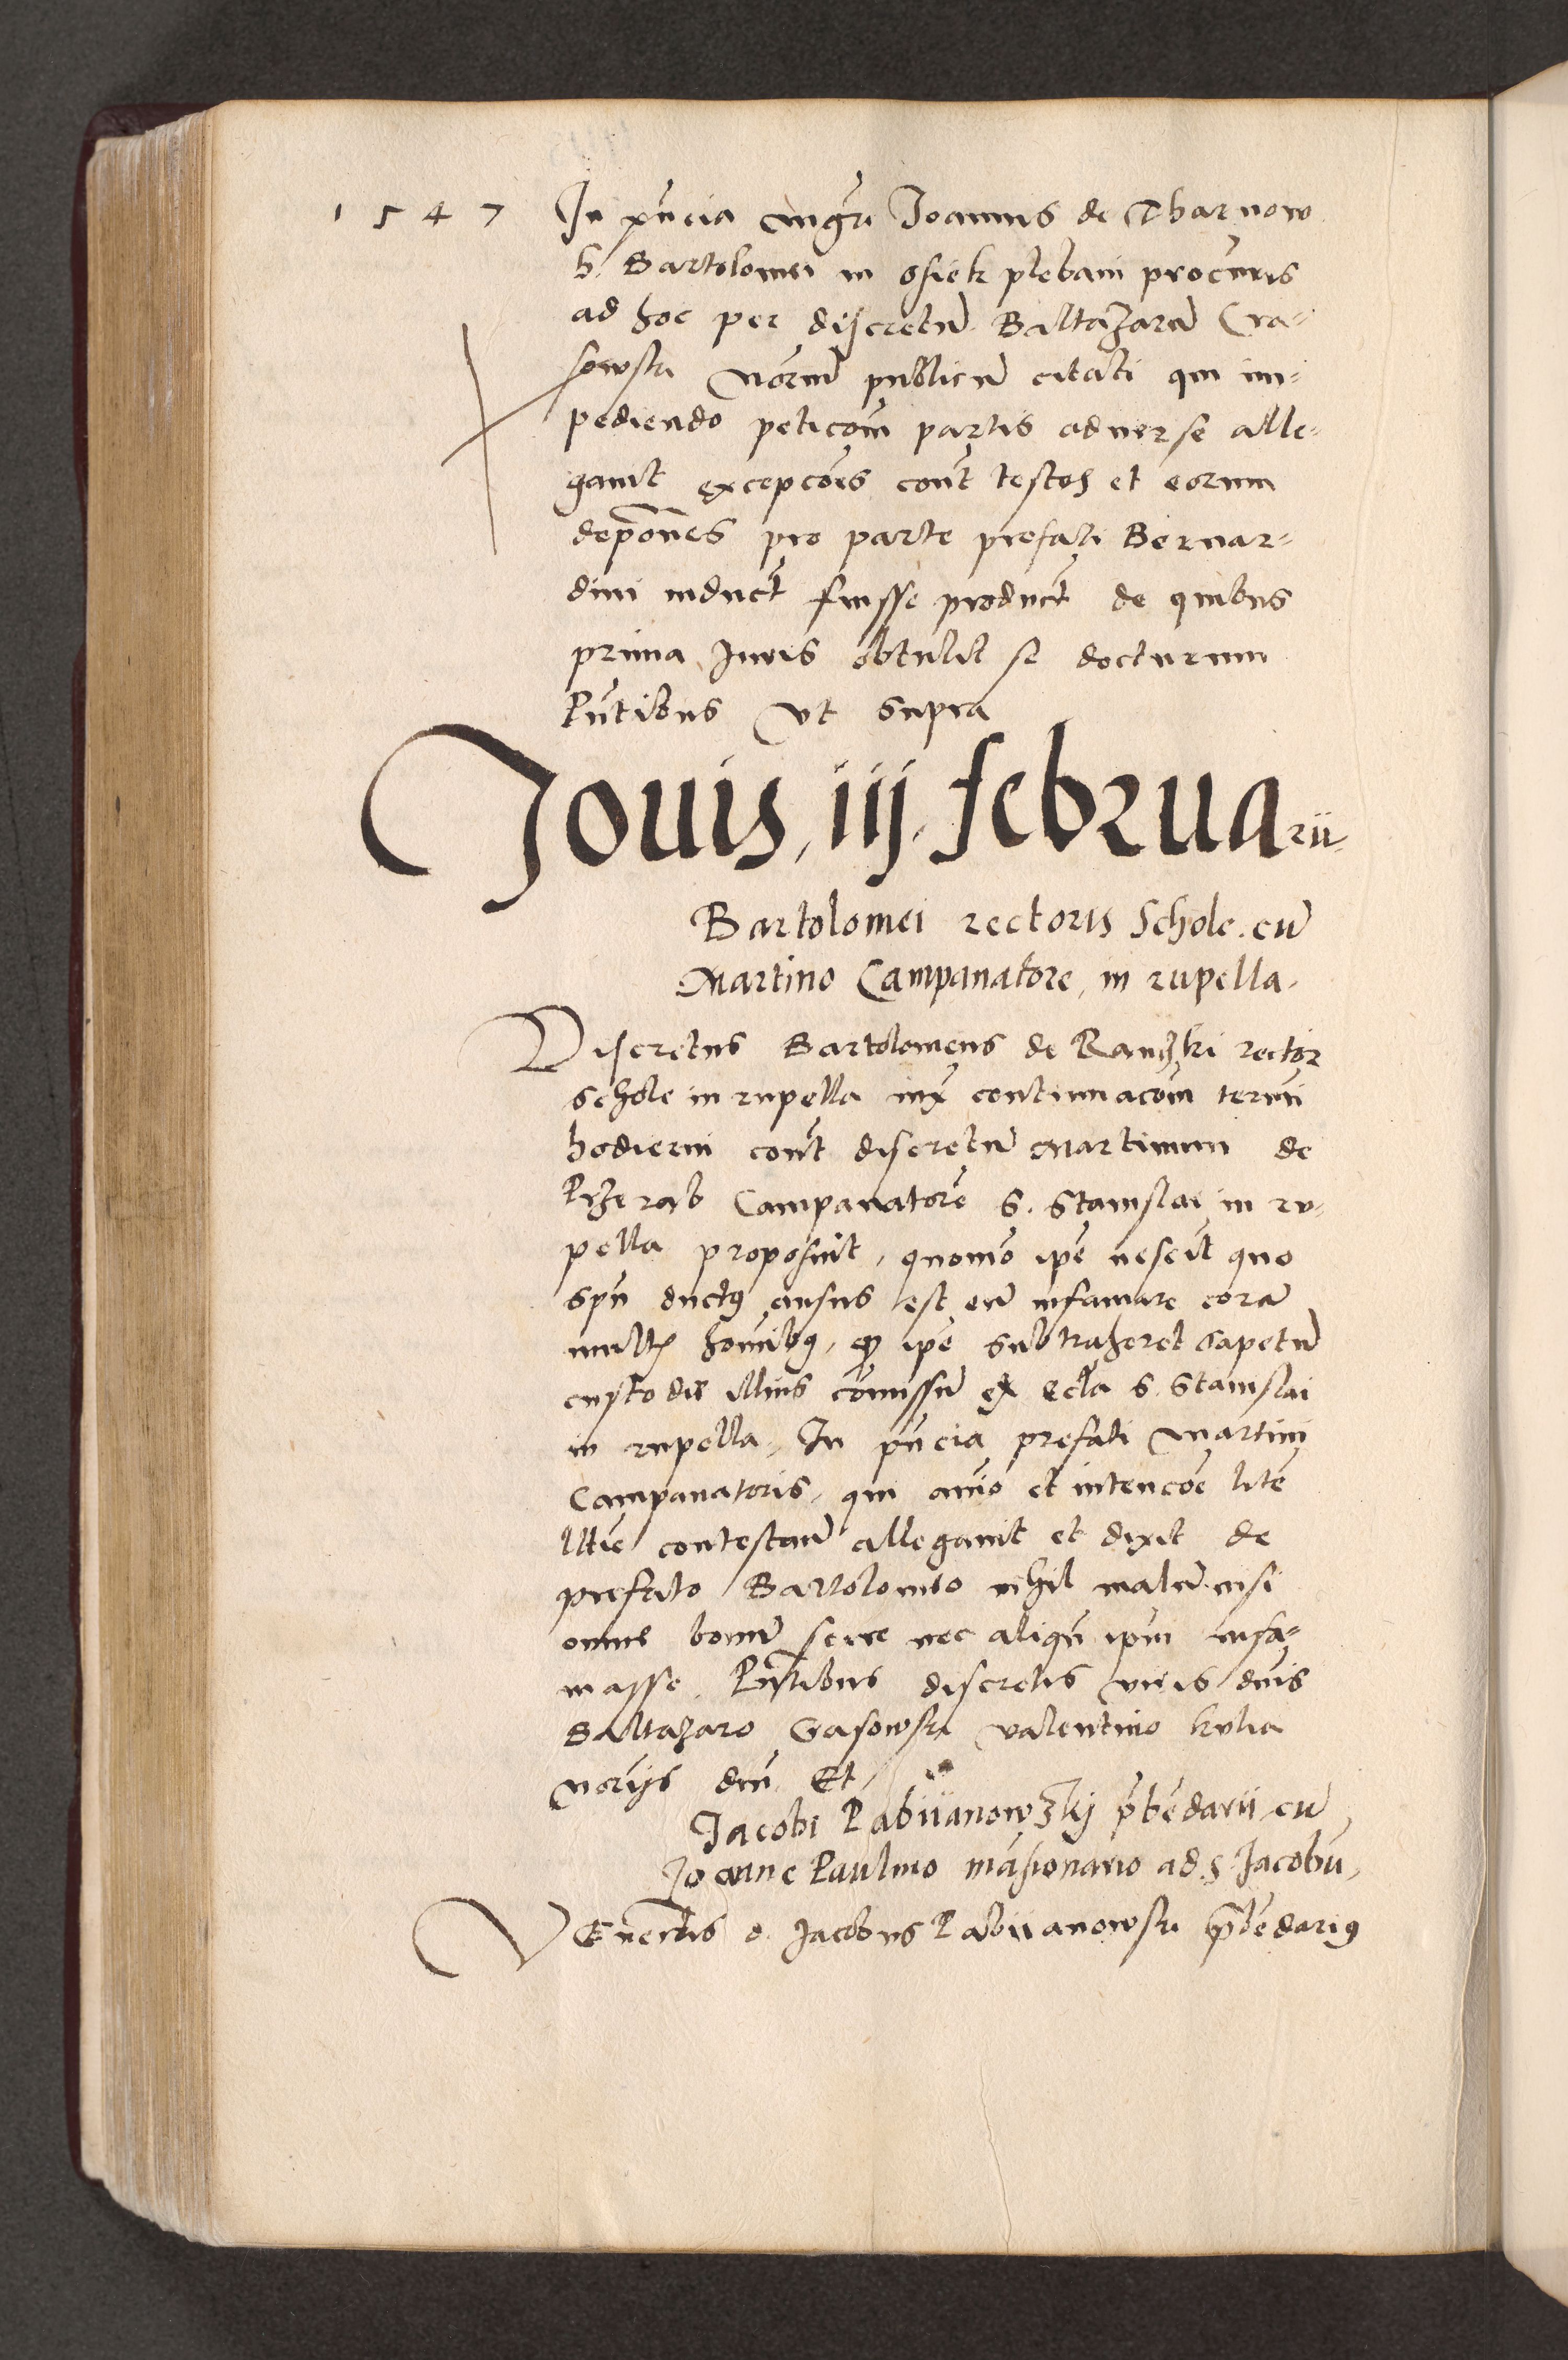 1547 In pn̄cia mgr̄i Joannis de Tharnow
b. Bartolomei in Osiek plebani procuris
ad hoc per discretū Baltazarū Cra-
sowski nōrium publicū citati qui im-
pediendo peticoē̄m partis aduerse alle-
gauit excepcōes cont̄ testes et eorum
depōnes pro parte prefati Bernar-
dini induct̄ fuisse product̄ de quibus
prima Juris obtulit se docturum
Pn̄tibus vt supra
Jouis, iij. februarii.
Bartolomei rectoris Schole. cū
Martino Campanatore, in rupella.
Discretus Bartolomeus de rector
schole in rupella iux̄ continuacōm termi
hodierni cont̄ discretū Martinum de
Campanatorē S. Stanislai in ru-
pella proposuit, quomō ipē nescit quo
spū ductꝯ ausus est eū infamare corā
multꝭ hōmibꝯ, ꝙ ipē subtraheret tapetū
custodie illius cōmissū ex ecl̄a S. Stanislai
in rupella. In pn̄cia prefati Martini
Campanatoris, qui aīo et intencōe litē
contestanđ allegauit et dixit de
prefato Bartolomeo nihil malū nisi
omne bonū scire nec aliqn̄ ipm̄ infa-
masse. Pn̄tibus discretis viris dn̄is
Baltazaro Crasowski Valentino Kulia
norijs dm̄ Et
Jacobi Pabiianowzkij p̄bēdarii cū
Joanne Paulino māsionario ad. S. Jacobū,
VEnerlis d. Jacobus Pabiianowski p̄bēdariꝯ